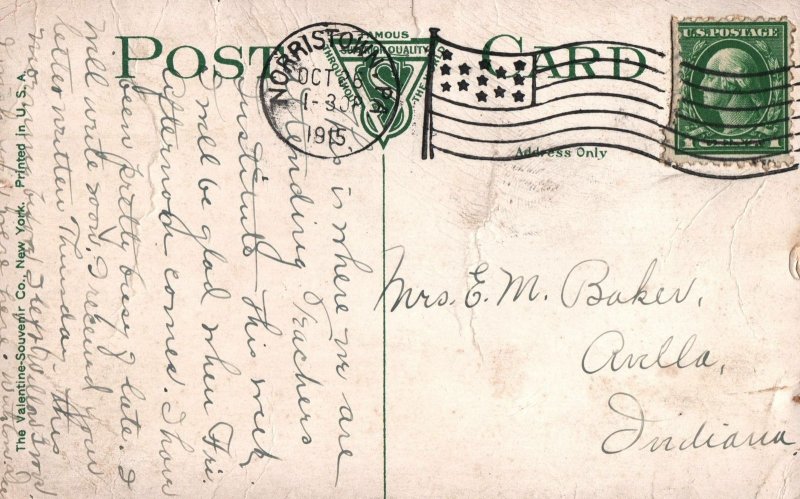 POST CARD
FAMOUS
SUPERIOR QUALITY
THROUGHOUT THE WORLD
NORRISTOWN, PA
OCT 6
1-30P
1915
U.S. POSTAGE
1 CENT 1
Address Only
This is where we are
attending Teachers
Institute this week.
I will be glad when Fri.
afternoon comes. I have
been pretty busy of late. I
will write soon. I received your
letter written Thursday. This
Mrs. E. M. Baker,
Avilla,
Indiana
The Valentine-Souvenir Co., New York. Printed in U. S. A.